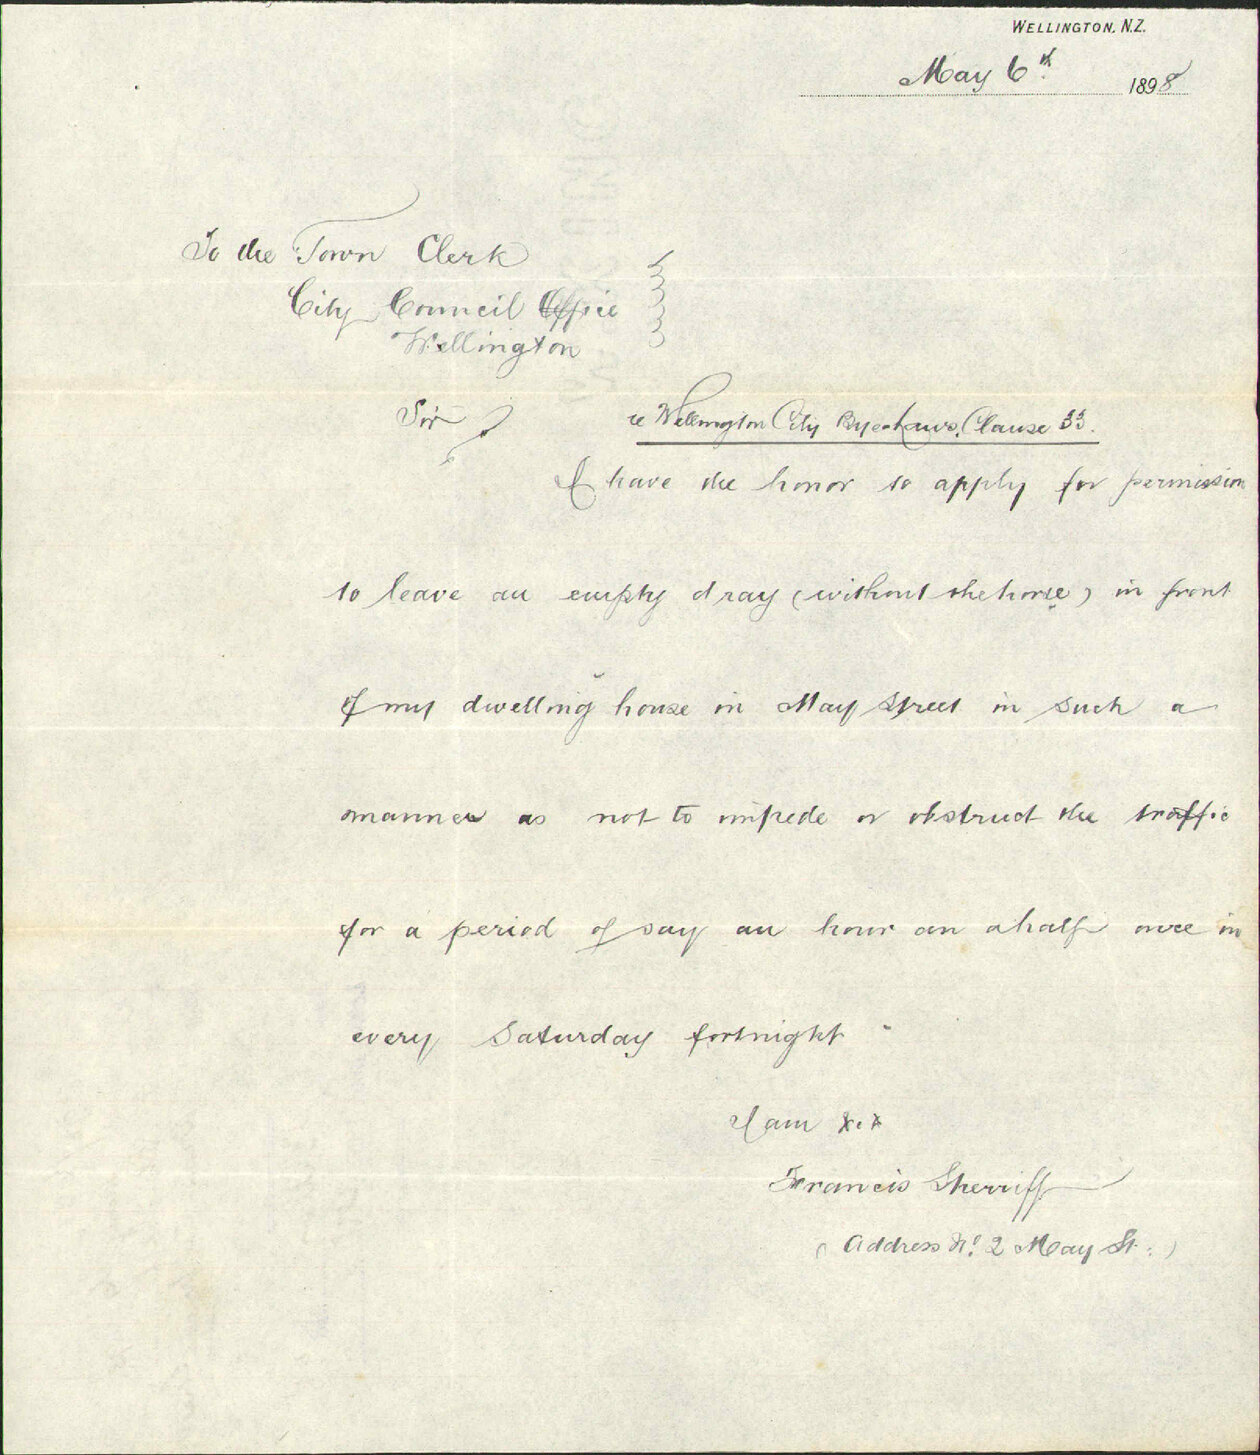 WELLINGTON, N.Z.
May 6th 1898
To the Town Clerk
City Council Office
Wellington
Sir
re Wellington City Bye-Laws, Clause 33.
I have the honor to apply for permission
to leave an empty dray (without the horse) in front
of my dwelling house in May Street in such a
manner as not to impede or obstruct the traffic
for a period of say an hour an a half once in
every Saturday fortnight.
I am &.&
Francis Sherriff
(Address No. 2 May St.)